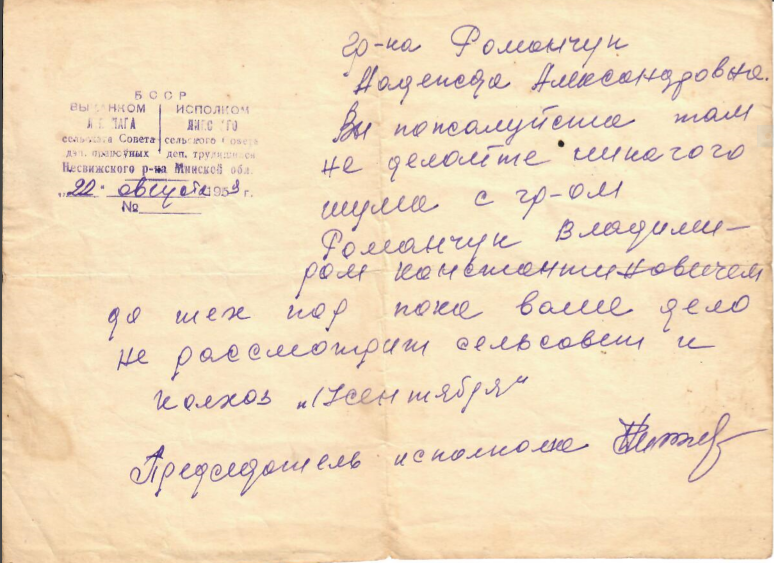 БССР
ВЫКАНКОМ ИСПОЛКОМ
сельскага Совета сельского Совета
дэп. працоўных деп. трудящихся
Несвижского р-на Минской обл.
„22" августа 1959 г.
№
гр-ка Романчук
Надежда Александровна.
Вы пожалуйста там
не делайте никагого
шума с гр-ом
Романчук Владими-
ром Константиновичем
до тех пор пока ваше дело
не рассмотрит сельсовет и
колхоз „17 сентября"
Председатель исполкома